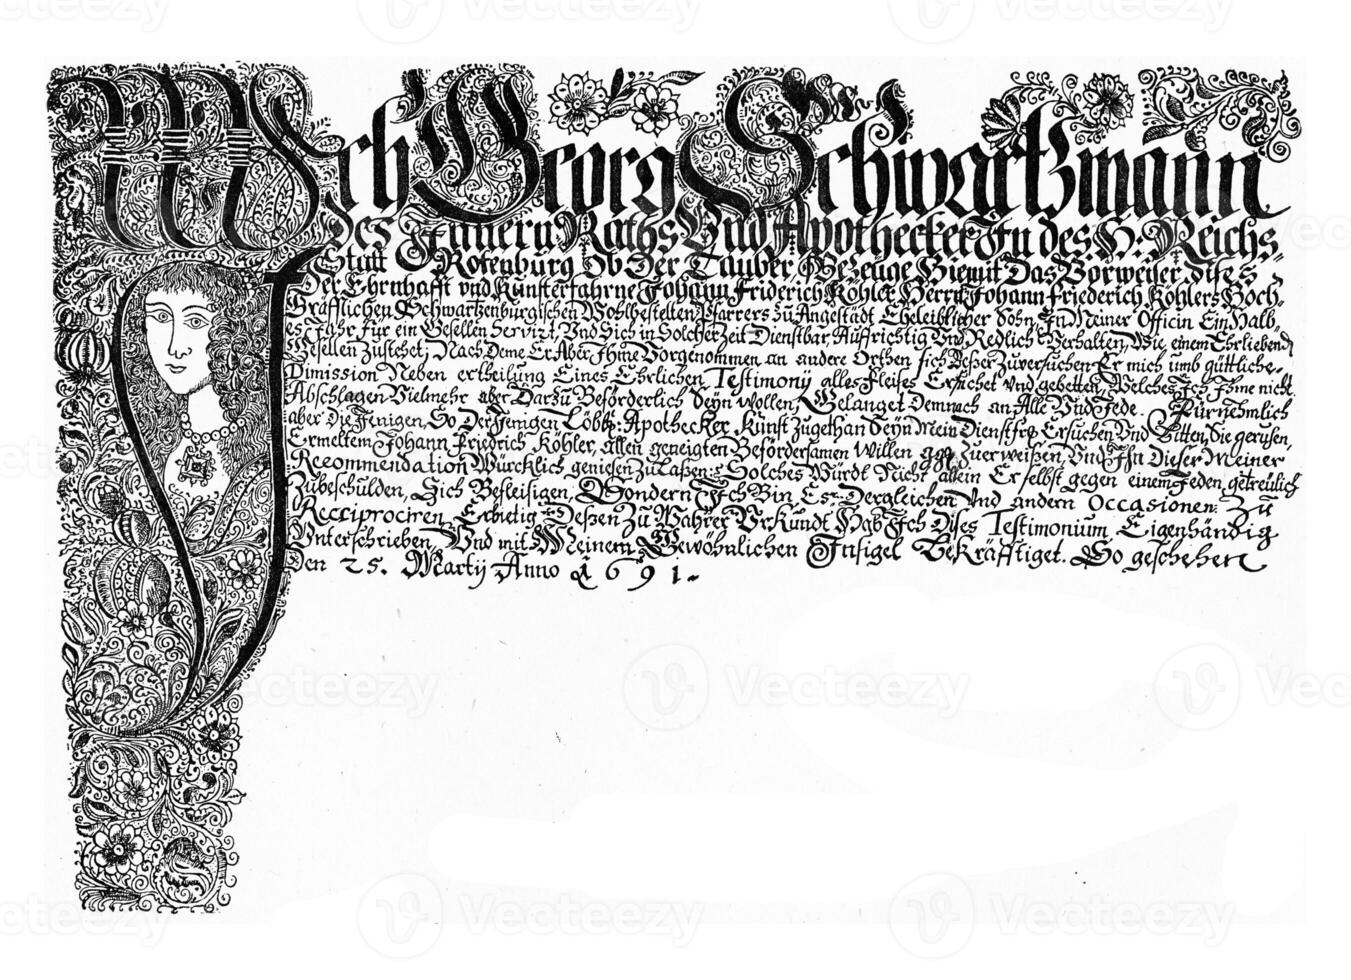 Ich Georg Schwartzmann
Des Innern Raths Und Apothecker In des H: Reichs-
Statt Rotenburg Ob Der Tauber Bezeuge Hiemit Das Vorweiser dises
Der Ehrnhafft und Kunsterfahrne Johann Friderich Köhler Herrn Johann Friederich Köhlers Hoch-
Gräfflichen Schwartzenburgischen Wohlbestelten Pfarrers zu Angestädt Eheleiblicher Sohn, In Meiner Officin Ein Halb-
es Jahr für ein Gesellen Servirt, Und Sich in Solcher Zeit Dienstbar, Auffrichtig Und Redlich Verhalten, Wie einem Ehrliebend
Gesellen Zustehet; Nach Deme Er Aber Ihme Vorgenommen an andere Orthen sich Besser Zuversuchen Er mich umb güttliche-
Dimission Neben ertheilung Eines Ehrlichen Testimonij alles Fleises Ersuchet Und gebetten, Welches Ich Ihme nicht
Abschlagen Vielmehr aber Darzu Beförderlich Seyn wollen, Gelanget Demnach an Alle Und Jede. Fürnehmlich
aber Die Jenigen, So Der Jenigen Löbl: Apothecker Kunst Zugethan Seyn Mein Dienstfr. Ersuchen Und Bitten, Sie geruhen,
Ermeltem Johann Friedrich Köhler, allen geneigten Befördersamen Willen Zuerweißen, Und Ihn Dieser Meiner
Recommendation Würcklich geniesen Zulaßen: Solches Würdt Nicht allein Er selbst gegen einem Jeden, getreulich
Zubeschulden, Sich Befleisigen, Sondern Ich Bin Es Dergleichen Und andern Occasionen: Zu
Recciprociren Erbietig Deßen Zu Wahrer Urkundt Hab Ich Dises Testimonium Eigenhändig
Unterschrieben, Und mit Meinem Gewöhnlichen Insigel Bekräfftiget. So geschehen
Den 25. Martij Anno 1691.
Vecteezy